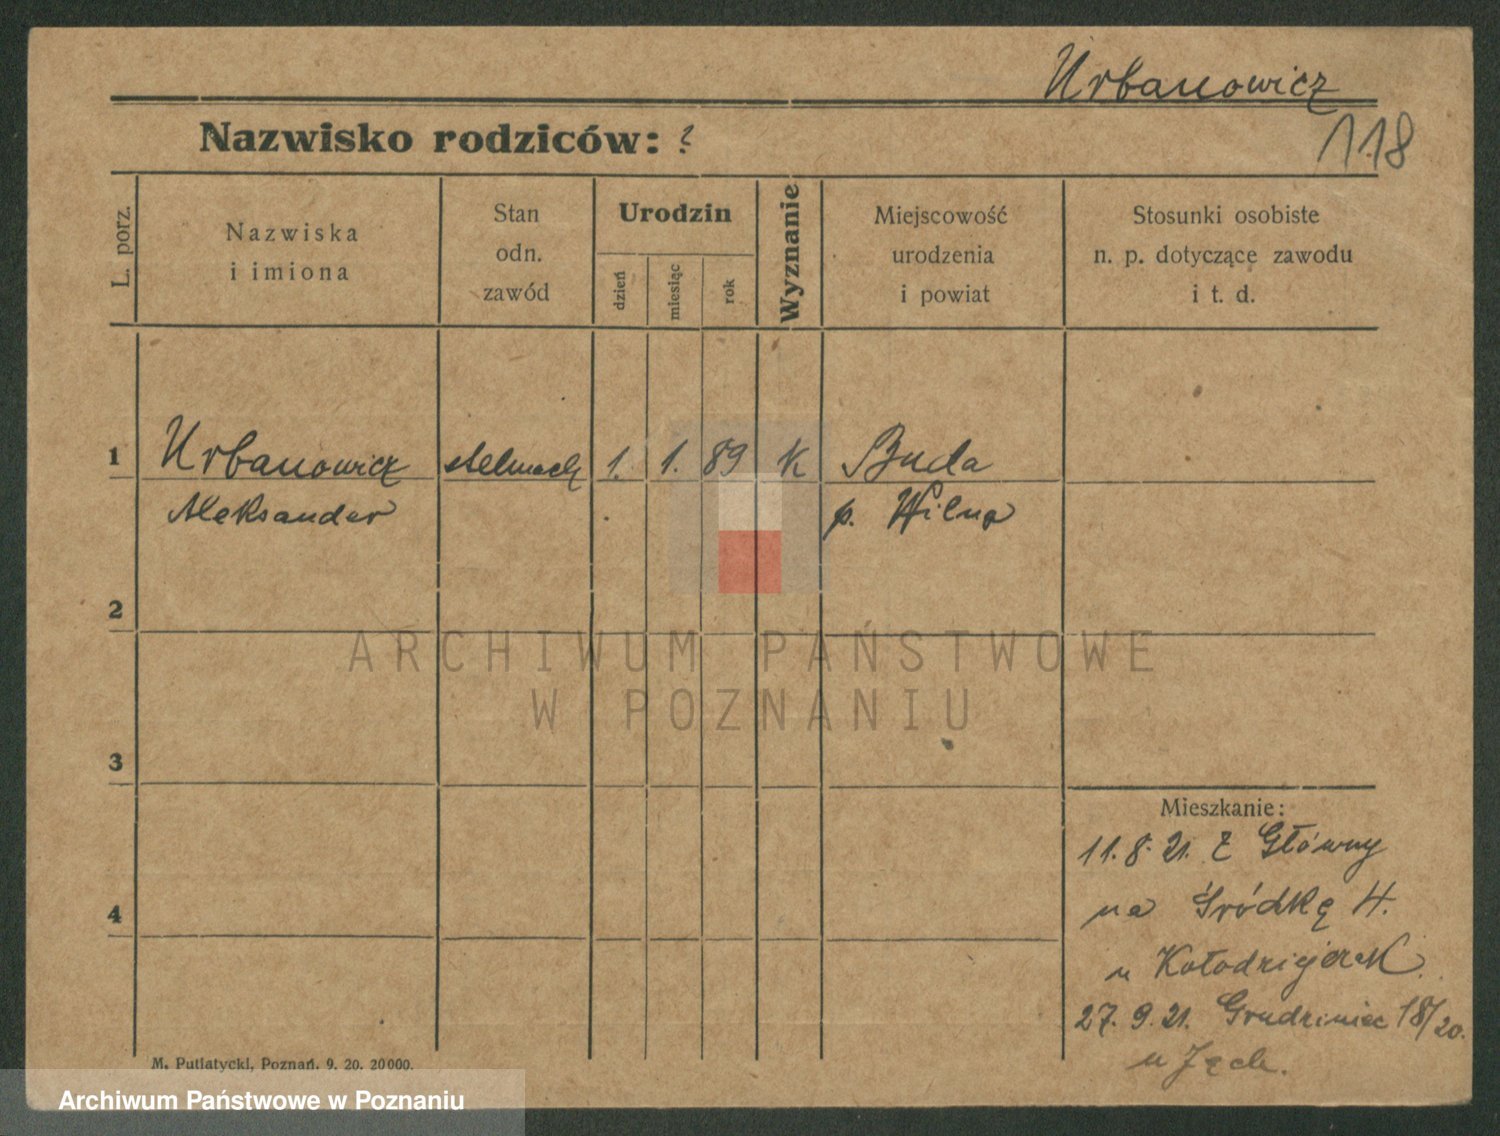 Urbanowicz
118
Nazwisko rodziców: ?
L. porz.
Nazwiska
i imiona
Stan
odn.
zawód
Urodzin
dzień
miesiąc
rok
Wyznanie
Miejscowość
urodzenia
i powiat
Stosunki osobiste
n. p. dotyczące zawodu
i t. d.
1 Urbanowicz stelmach 1. 1. 89 K Buda
Aleksander p. Wilno
2
3
4
Mieszkanie:
11.8.21. Z Główny
na Śródkę 4.
u Kołodziejczak
27.9.21. Grudziniec 18/20.
u
M. Putiatycki, Poznań. 9. 20. 20000.
ARCHIWUM PAŃSTWOWE
W POZNANIU
Archiwum Państwowe w Poznaniu